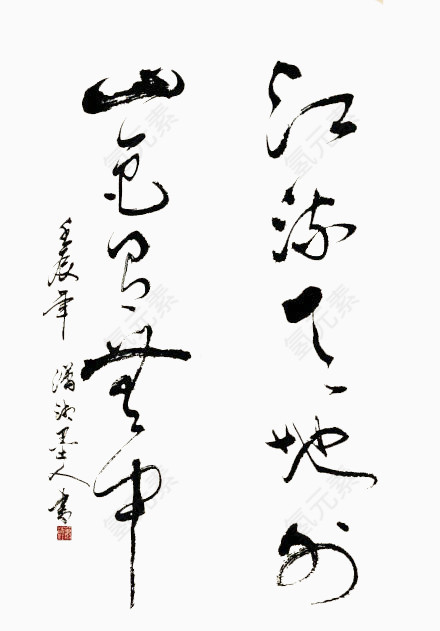 江流天地外
山色有無中
壬辰年 瀟湘墨人書
氢元素